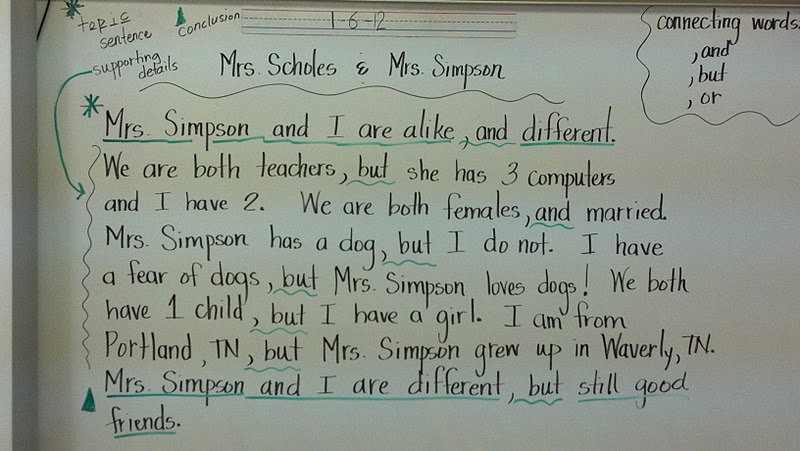 * topic sentence
▲ conclusion
supporting details
1-6-12
connecting words
, and
, but
, or
Mrs. Scholes & Mrs. Simpson
* Mrs. Simpson and I are alike, and different.
We are both teachers, but she has 3 computers
and I have 2. We are both females, and married.
Mrs. Simpson has a dog, but I do not. I have
a fear of dogs, but Mrs. Simpson loves dogs! We both
have 1 child, but I have a girl. I am from
Portland, TN, but Mrs. Simpson grew up in Waverly, TN.
▲ Mrs. Simpson and I are different, but still good
friends.